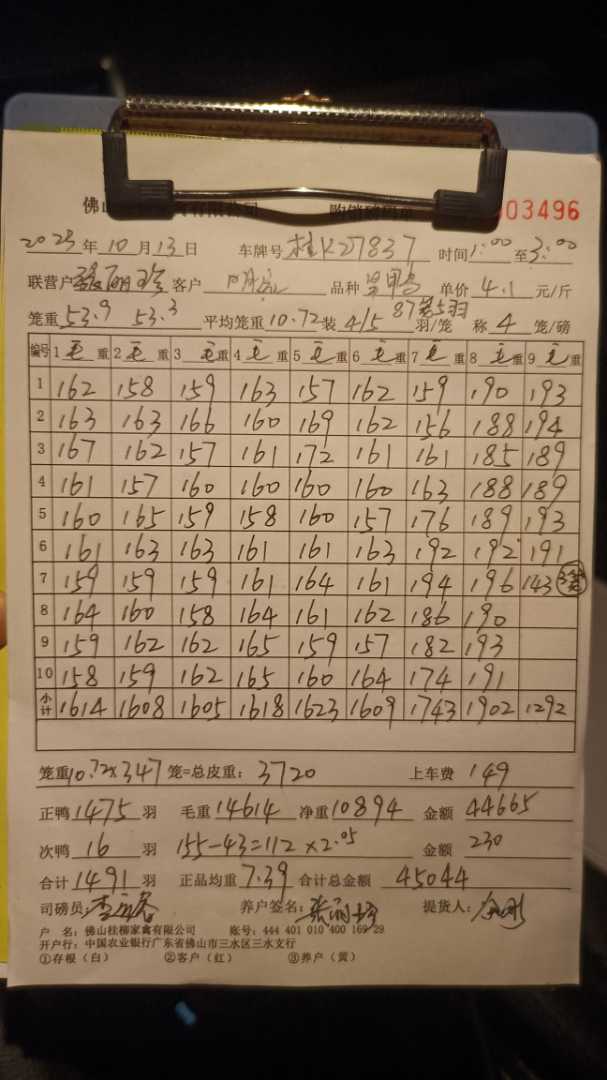 03496
2025年10月13日 车牌号桂K27837 时间1:00至3:00
联营户 客户 品种 单价4.1元/斤
笼重53.9 53.3 平均笼重10.72装4/5 87笼5羽 羽/笼 称4笼/磅
编号 1毛重 2毛重 3毛重 4毛重 5毛重 6毛重 7毛重 8毛重 9毛重
1 162 158 159 163 157 162 159 190 193
2 163 163 166 160 169 162 156 188 194
3 167 162 157 161 172 161 161 185 189
4 161 157 160 160 160 160 163 188 189
5 160 165 159 158 160 157 176 189 193
6 161 163 163 161 161 163 192 192 191
7 159 159 159 161 164 161 194 196 143 3笼
8 164 160 158 164 161 162 186 190
9 159 162 162 165 159 157 182 193
10 158 159 162 165 160 164 174 191
小计 1614 1608 1605 1618 1623 1609 1743 1902 1292
笼重10.72×347笼=总皮重：3720 上车费 149
正鸭1475羽 毛重14614 净重10894 金额44665
次鸭16羽 155-43=112×2.05 金额230
合计1491羽 正品均重7.39 合计总金额45044
司磅员: 养户签名: 提货人:
户 名：佛山桂柳家禽有限公司 账号：444 401 010 400 169 29
开户行：中国农业银行广东省佛山市三水区三水支行
①存根（白） ②客户（红） ③养户（黄）